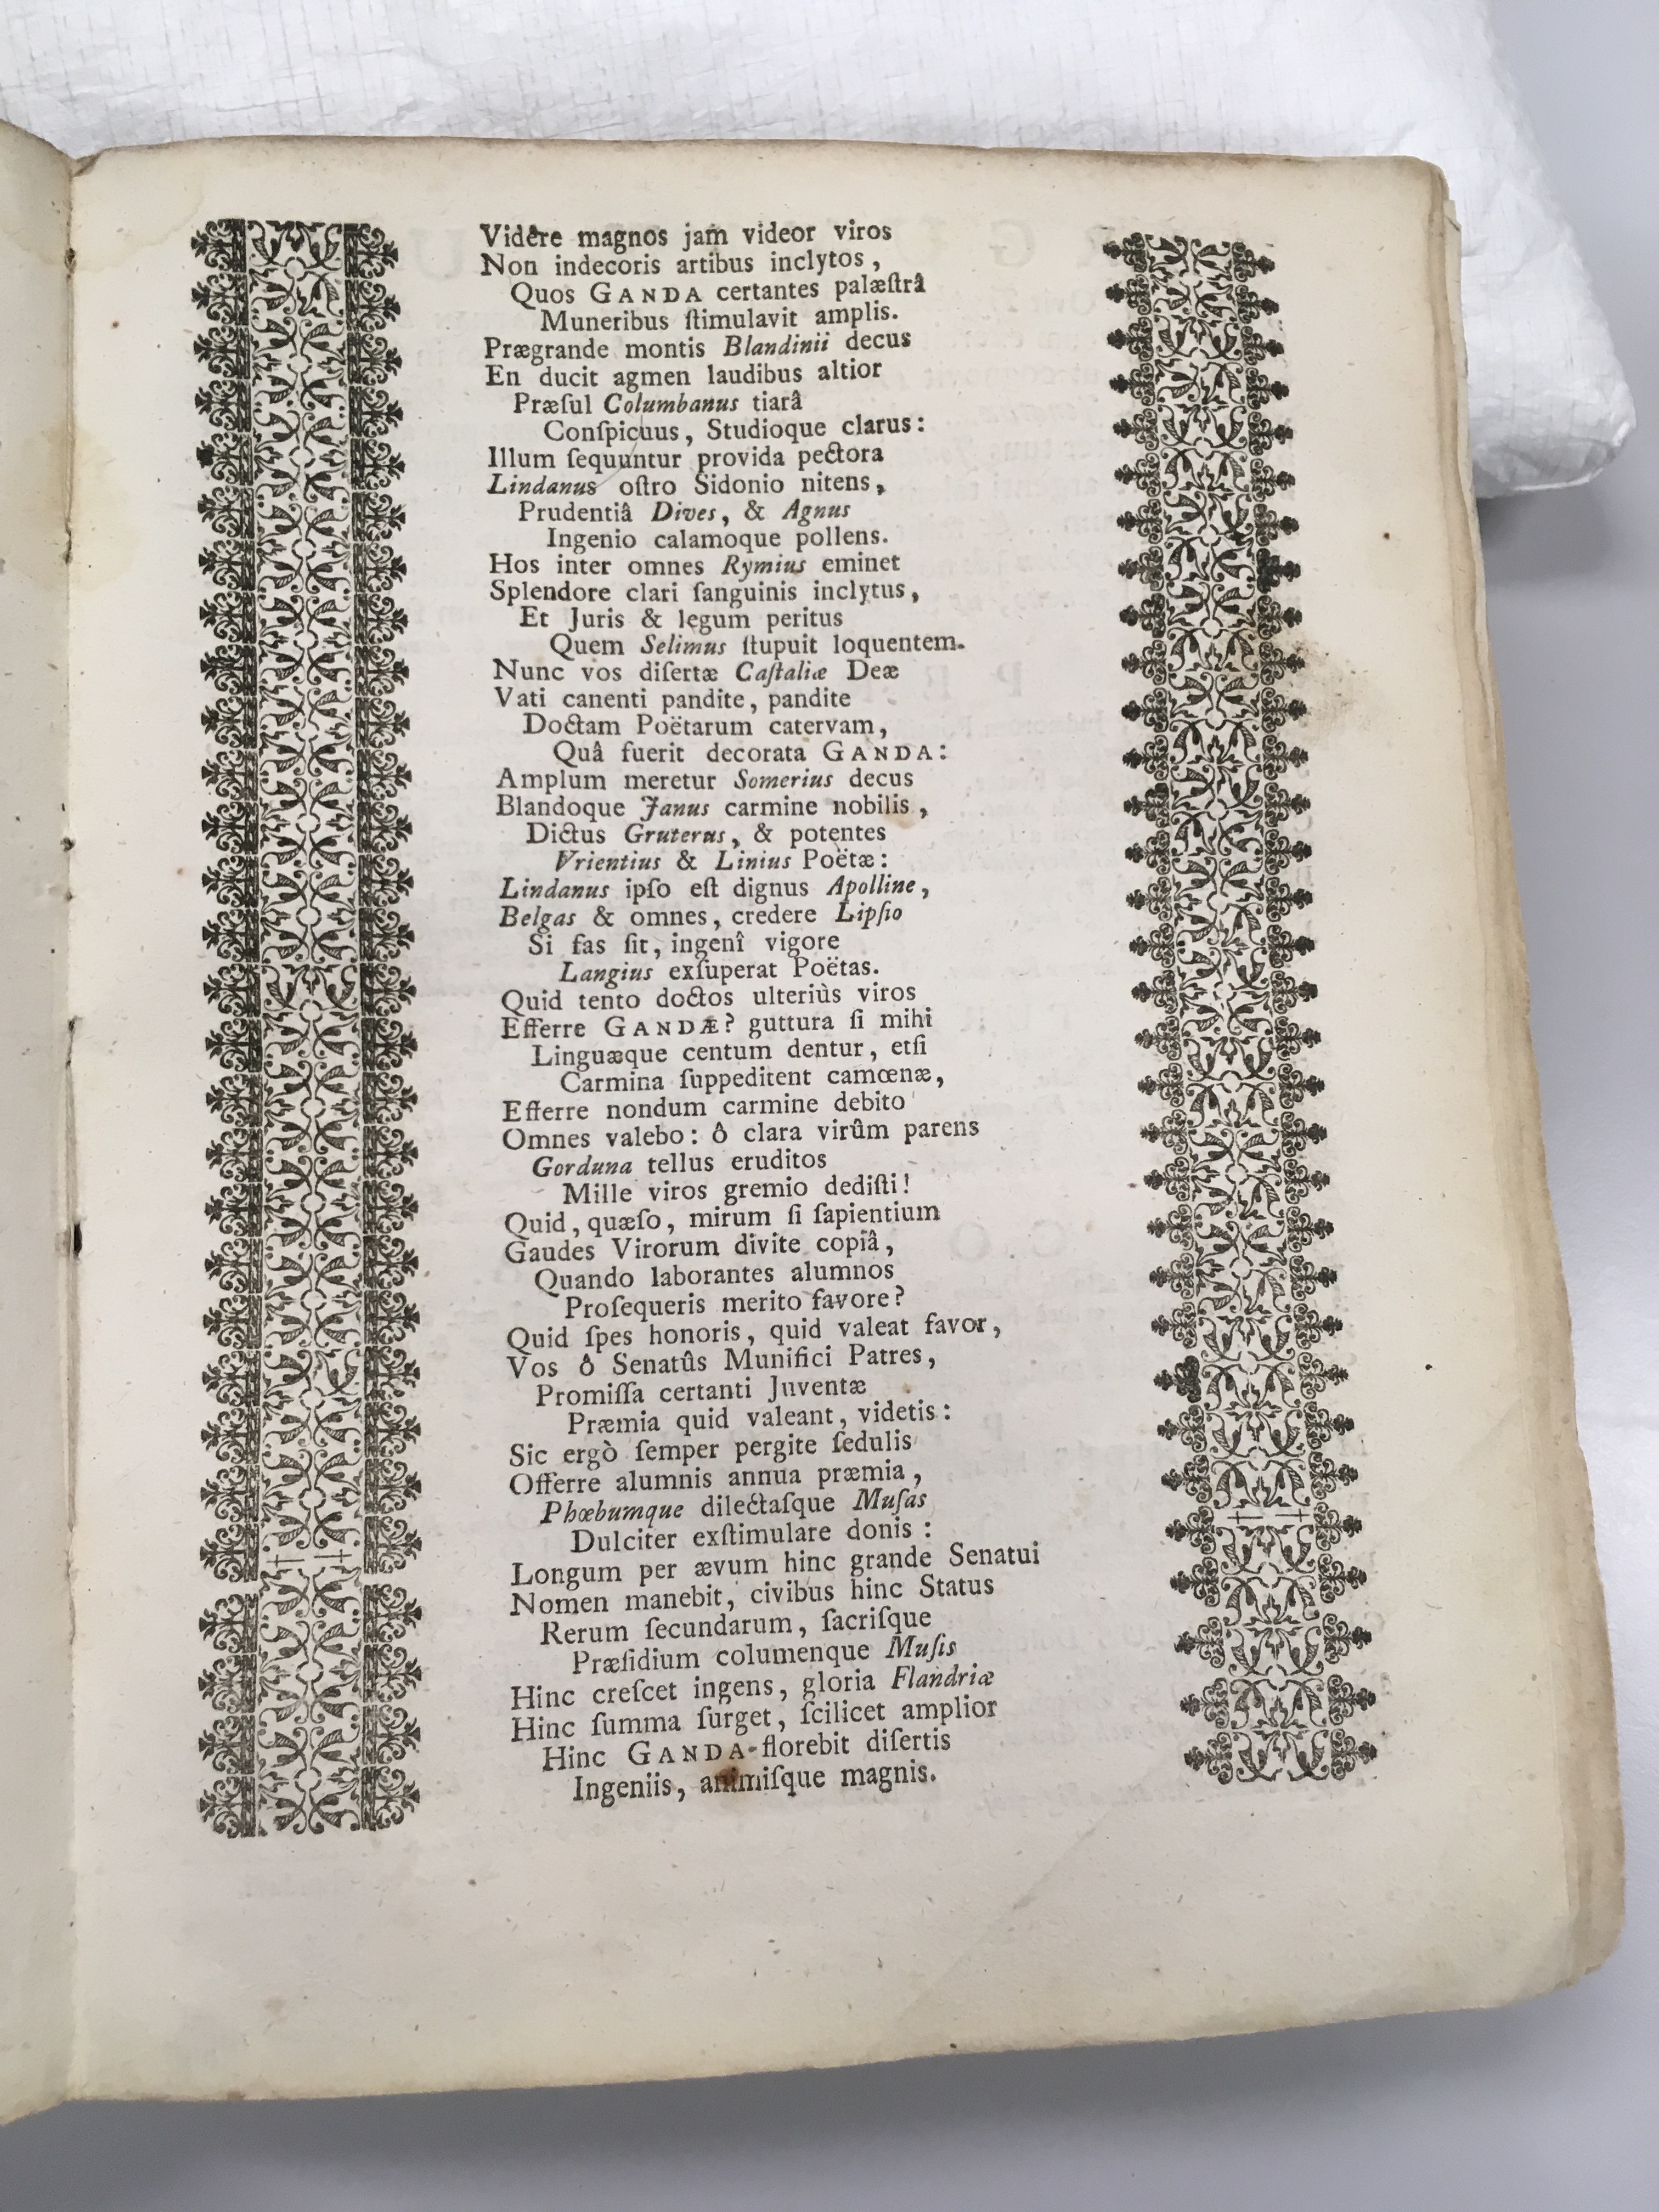 Vidêre magnos jam videor viros
Non indecoris artibus inclytos,
Quos GANDA certantes palæſtrâ
Muneribus ſtimulavit amplis.
Prægrande montis Blandinii decus
En ducit agmen laudibus altior
Præſul Columbanus tiarâ
Conſpicuus, Studioque clarus:
Illum ſequuntur provida pectora
Lindanus oſtro Sidonio nitens,
Prudentiâ Dives, & Agnus
Ingenio calamoque pollens.
Hos inter omnes Rymius eminet
Splendore clari ſanguinis inclytus,
Et Juris & legum peritus
Quem Selimus ſtupuit loquentem.
Nunc vos diſertæ Caſtaliæ Deæ
Vati canenti pandite, pandite
Doctam Poëtarum catervam,
Quâ fuerit decorata GANDA:
Amplum meretur Somerius decus
Blandoque Janus carmine nobilis,
Dictus Gruterus, & potentes
Vrientius & Linius Poëtæ:
Lindanus ipſo eſt dignus Apolline,
Belgas & omnes, credere Lipſio
Si fas ſit, ingenî vigore
Langius exſuperat Poëtas.
Quid tento doctos ulteriùs viros
Efferre GANDÆ? guttura ſi mihi
Linguæque centum dentur, etſi
Carmina ſuppeditent camœnæ,
Efferre nondum carmine debito
Omnes valebo: ô clara virûm parens
Gorduna tellus eruditos
Mille viros gremio dediſti!
Quid, quæſo, mirum ſi ſapientium
Gaudes Virorum divite copiâ,
Quando laborantes alumnos
Proſequeris merito favore?
Quid ſpes honoris, quid valeat favor,
Vos ô Senatûs Munifici Patres,
Promiſſa certanti Juventæ
Præmia quid valeant, videtis:
Sic ergò ſemper pergite ſedulis
Offerre alumnis annua præmia,
Phœbumque dilectaſque Muſas
Dulciter exſtimulare donis:
Longum per ævum hinc grande Senatui
Nomen manebit, civibus hinc Status
Rerum ſecundarum, ſacriſque
Præſidium columenque Muſis
Hinc creſcet ingens, gloria Flandriæ
Hinc ſumma ſurget, ſcilicet amplior
Hinc GANDA florebit diſertis
Ingeniis, animiſque magnis.